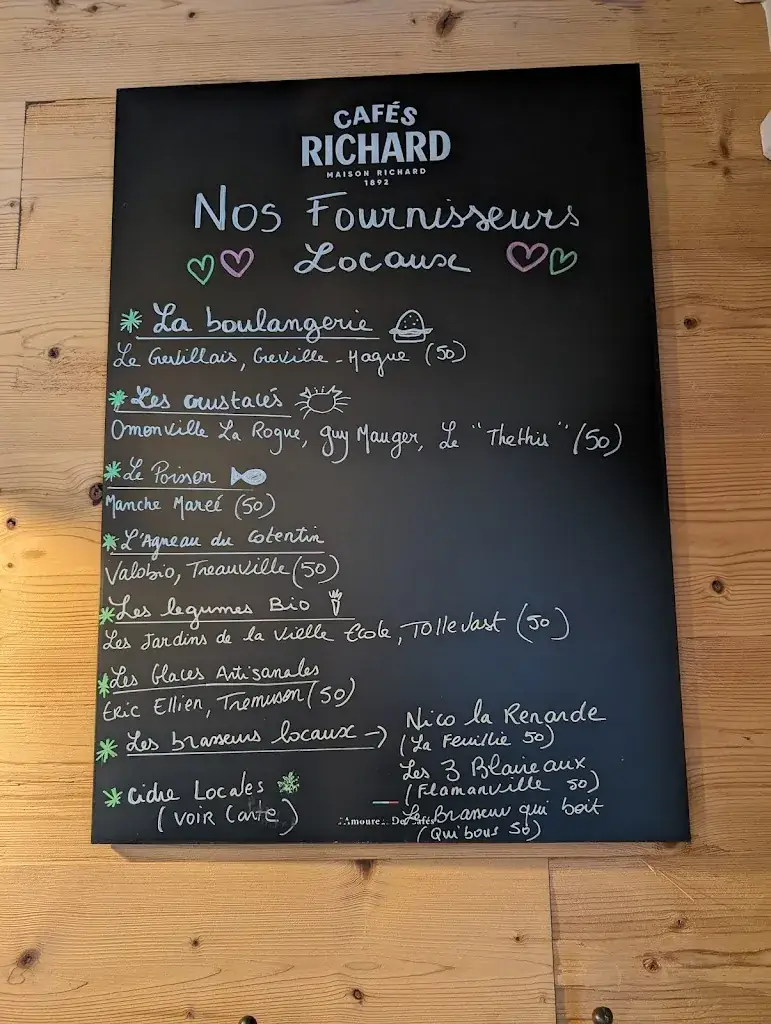 CAFÉS
RICHARD
MAISON RICHARD
1892
Nos Fournisseurs
Locaux
La boulangerie
Le Grevillais, Greville-Hague (50)
Les crustacés
Omonville La Rogue, Guy Mauger, Le "Thethis" (50)
Le Poison
Manche Mareé (50)
L'Agneau du Cotentin
Valobio, Treauville (50)
Les legumes Bio
Les Jardins de la Vielle Ecole, Tollevast (50)
Les Glaces Artisanales
Eric Ellien, Tremuson (50)
Les brasseurs locaux →
Nico la Renarde
(La Feuillie 50)
Les 3 Blaireaux
(Flamanville 50)
Le Brasseur qui boit
(Qui bous 50)
Cidre Locales
(VOIR Carte)